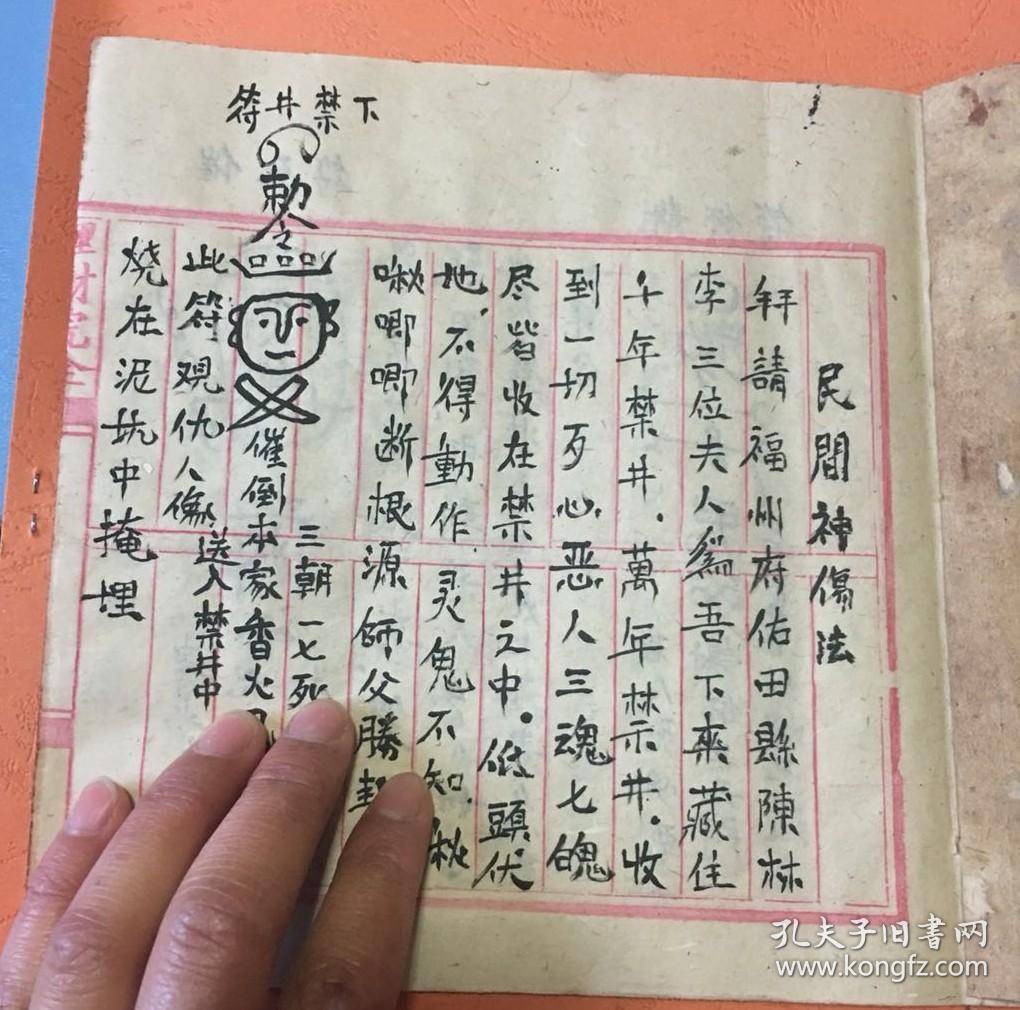 民間神傷法
拜請福州府佑田縣陳林
李三位夫人為吾下來藏住
千年禁井.萬年禁井.收
到一切歹心恶人三魂七魄
尽皆收在禁井之中.低頭伏
地,不得動作 灵鬼不知,秋
啾唧唧断根源師父勝
下禁井符
敕令
三朝一七死
催倒本家香火
此符观仇人像送入禁井中
烧在泥坑中掩埋
孔夫子旧书网
www.kongfz.com